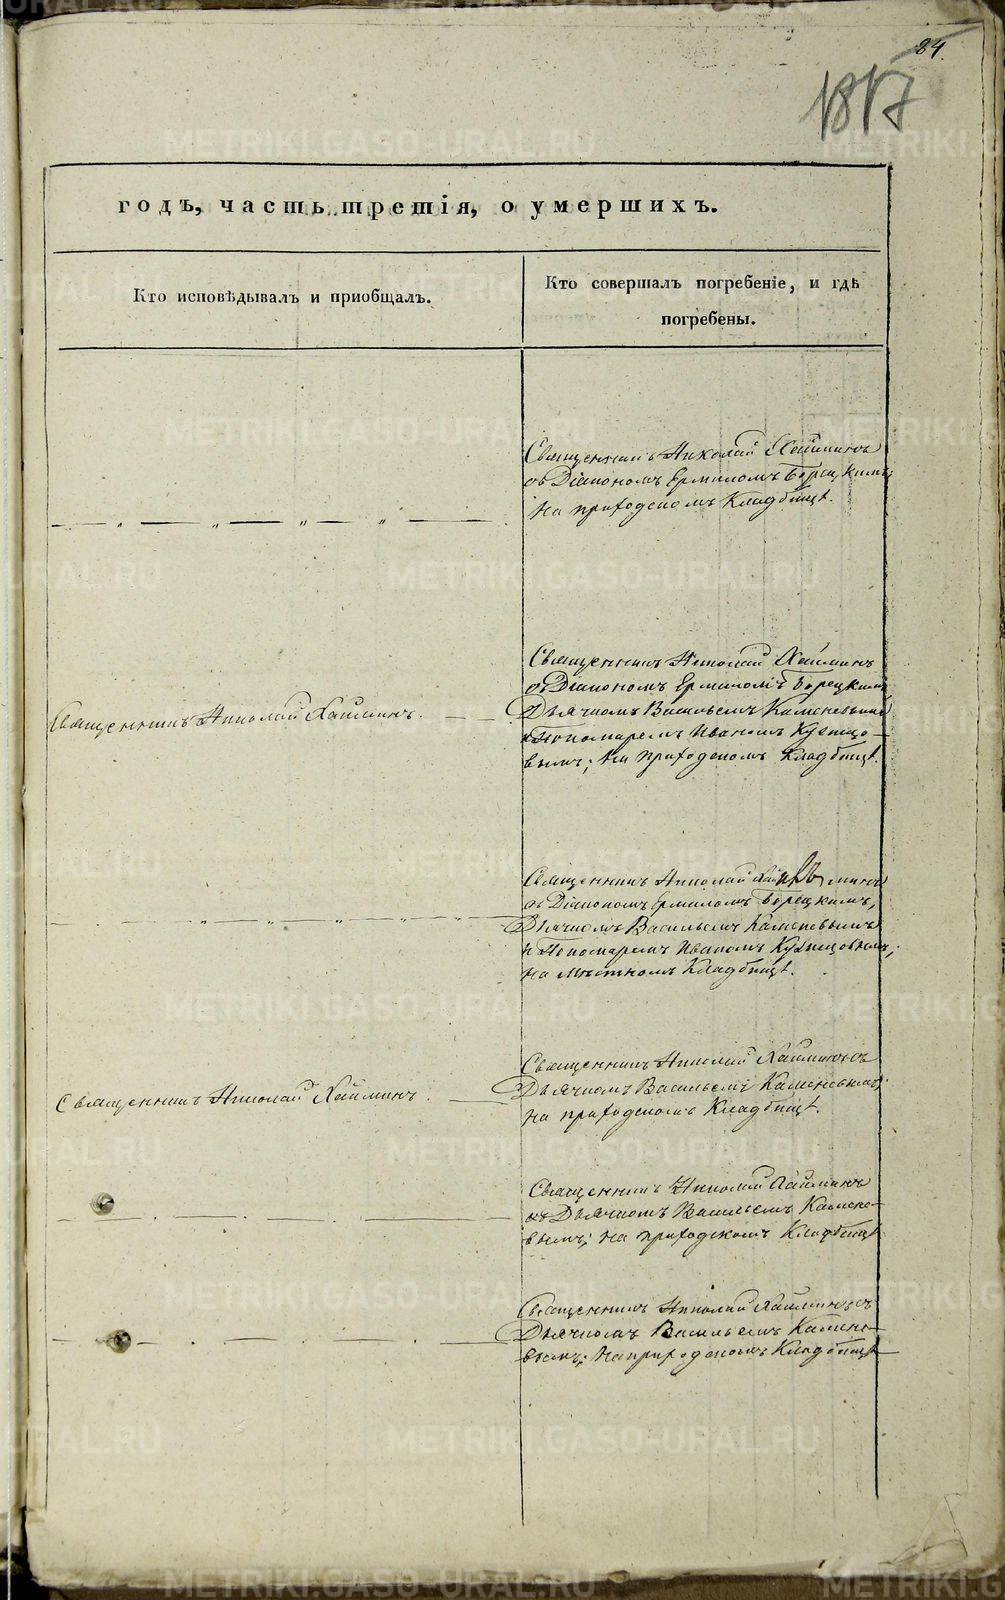 84.
1817
годъ, часть третія, о умершихъ.
Кто исповѣдывалъ и приобщалъ.
Кто совершалъ погребеніе, и гдѣ
погребены.
Священникъ Николай Хайминъ
съ Діакономъ Ермиломъ Борецкимъ;
на приходскомъ Кладбищѣ.
Священникъ Николай Хайминъ.
Священникъ Николай Хайминъ
съ Діакономъ Ермиломъ Борецкимъ
Дьячкомъ Васильемъ Каменевымъ
и Пономаремъ Иваномъ Кузнецо-
вымъ; на приходскомъ Кладбищѣ.
Священникъ Николай Хайминъ
съ Діакономъ Ермиломъ Борецкимъ,
Дьячкомъ Васильемъ Каменевымъ
и Пономаремъ Иваномъ Кузнецовымъ;
на мѣстномъ Кладбищѣ.
Священникъ Николай Хайминъ.
Священникъ Николай Хайминъ съ
Дьячкомъ Васильемъ Каменевымъ;
на приходскомъ Кладбищѣ.
Священникъ Николай Хайминъ
съ Дьячкомъ Васильемъ Камене-
вымъ; на приходскомъ Кладбищѣ
Священникъ Николай Хайминъ съ
Дьячкомъ Васильемъ Камене-
вымъ; на приходскомъ Кладбищѣ
METRIKI.GASO-URAL.RU